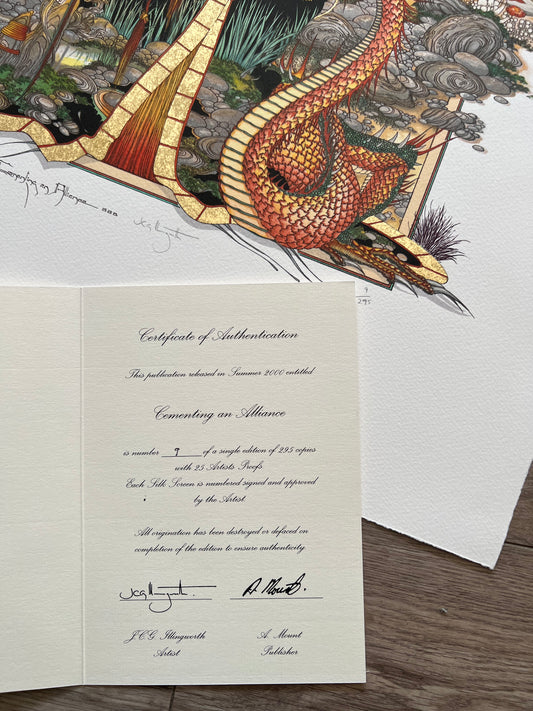 Cementing an Alliance ...
JCG Illingworth
9
295
Certificate of Authentication
This publication released in Summer 2000 entitled
Cementing an Alliance
is number 9 of a single edition of 295 copies
with 25 Artists Proofs
Each Silk Screen is numbered signed and approved
by the Artist
All origination has been destroyed or defaced on
completion of the edition to ensure authenticity.
JCG Illingworth. A. Mount.
J.C.G. Illingworth A. Mount
Artist Publisher